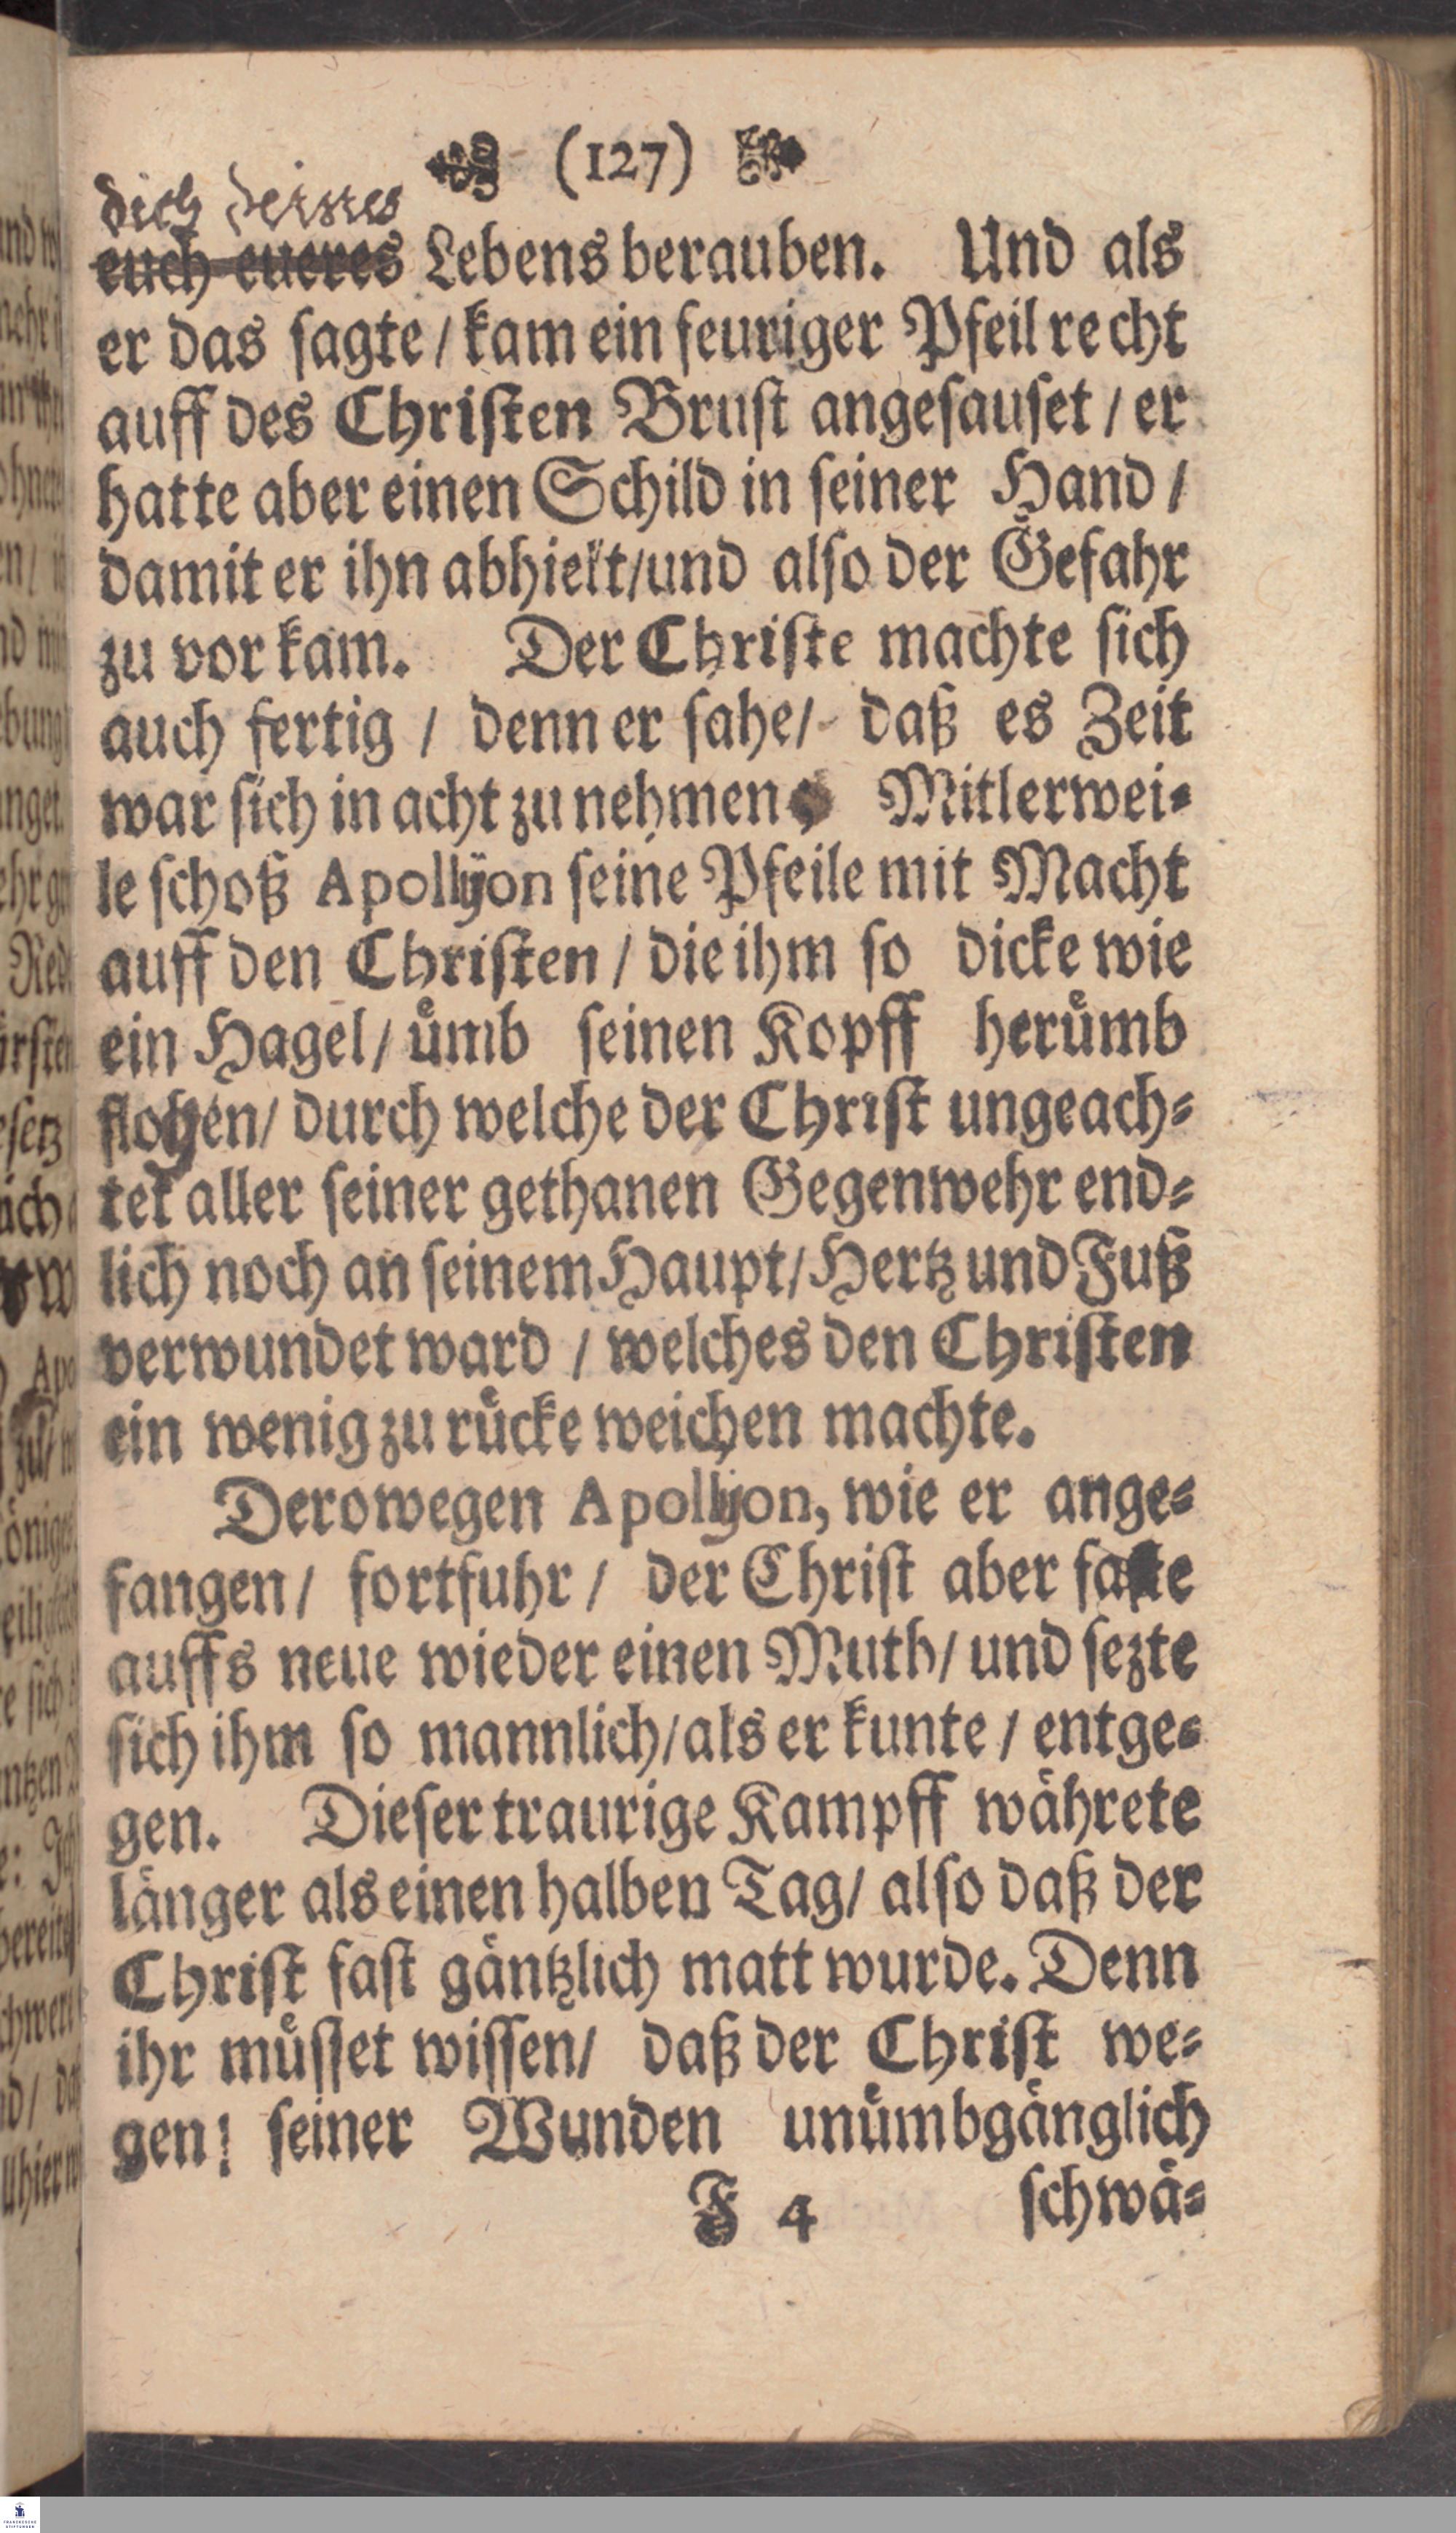 (127)
dich deines
euch eueres Lebens berauben. Und als
er das ſagte / kam ein feuriger Pfeil recht
auff des Chriſten Bruſt angeſauſet / er
hatte aber einen Schild in ſeiner Hand /
damit er ihn abhielt / und alſo der Gefahr
zu vor kam. Der Chriſte machte ſich
auch fertig / denn er ſahe / daß es Zeit
war ſich in acht zu nehmen; Mitlerwei-
le ſchoß Apollyon ſeine Pfeile mit Macht
auff den Chriſten / die ihm ſo dicke wie
ein Hagel / uͤmb ſeinen Kopff heruͤmb
flohen / durch welche der Chriſt ungeach-
tet aller ſeiner gethanen Gegenwehr end-
lich noch an ſeinem Haupt / Hertz und Fuß
verwundet ward / welches den Chriſten
ein wenig zu ruͤcke weichen machte.
Derowegen Apollyon, wie er ange-
fangen / fortfuhr / der Chriſt aber faſte
auffs neue wieder einen Muth / und ſezte
ſich ihm ſo mannlich / als er kunte / entge-
gen. Dieſer traurige Kampff waͤhrete
laͤnger als einen halben Tag / alſo daß der
Chriſt faſt gaͤntzlich matt wurde. Denn
ihr muͤſſet wiſſen / daß der Chriſt we-
gen! ſeiner Wunden unuͤmbgaͤnglich
F 4 ſchwaͤ-